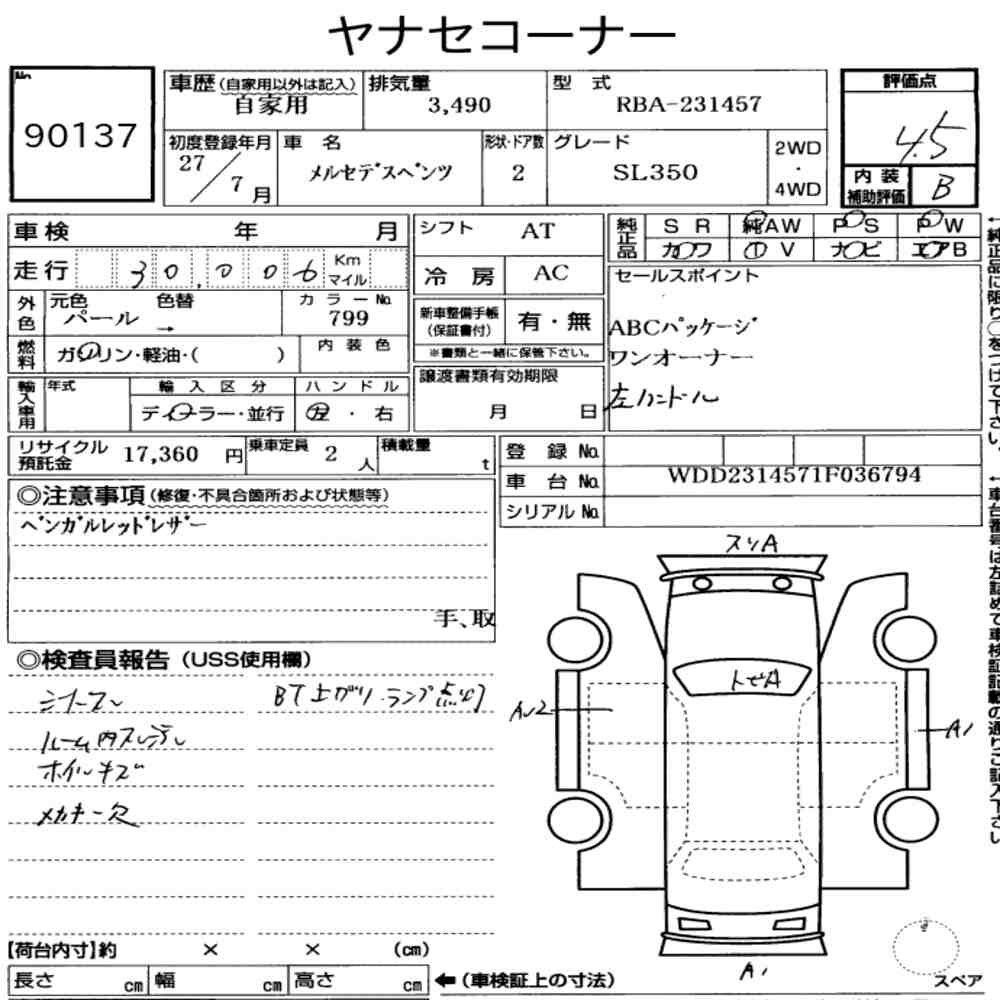 ヤナセコーナー
No.
90137
車歴(自家用以外は記入)
自家用
排気量
3,490
型 式
RBA-231457
評価点
4.5
初度登録年月
27/7月
車 名
メルセデスベンツ
形状・ドア数
2
グレード
SL350
2WD
・
4WD
内装補助評価
B
車検 年 月
シフト AT
純正品
S R 純AW P S P W
カワ T V ナビ エアB
走行 30,006 Km マイル
冷 房 AC
セールスポイント
外色 元色 色替 カラーNo.
パール → 799
新車整備手帳
(保証書付)
有・無
※書類と一緒に保管下さい。
ABCパッケージ
ワンオーナー
左ハンドル
燃料 ガソリン・軽油・( )
内装色
輸入車用 年式 輸入区分 ハンドル
ディーラー・並行 左・右
譲渡書類有効期限
月 日
リサイクル預託金 17,360 円
乗車定員 2 人
積載量 t
登 録 No.
車 台 No. WDD2314571F036794
シリアル No.
◎注意事項(修復・不具合箇所および状態等)
ベンガルレッドレザー
手、取
◎検査員報告(USS使用欄)
シートスレ
BT上がり.ランプ点灯
ルーム内スレ
ホイルキズ
メカキー欠
スリA
トビA
A1
A1
【荷台内寸】約 × × (cm)
長さ cm 幅 cm 高さ cm
←(車検証上の寸法)
スペア
←純正品に限り○をつけて下さい。
←車台番号は左詰めで車検証記載の通りご記入下さい